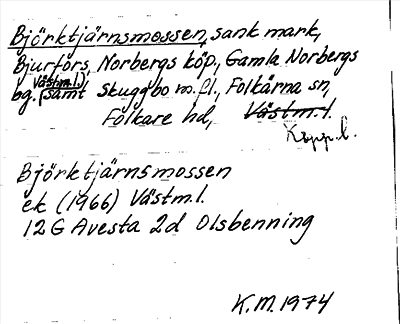 Björktjärnsmossen, sank mark,
Bjurfors, Norbergs köp., Gamla Norbergs
bg. (Västm.l.) samt Skuggbo m.fl., Folkärna sn,
Folkare hd, Västm.l.
Kopp.l.
Björktjärnsmossen
ek (1966) Västm.l.
12G Avesta 2d Olsbenning
K.M. 1974